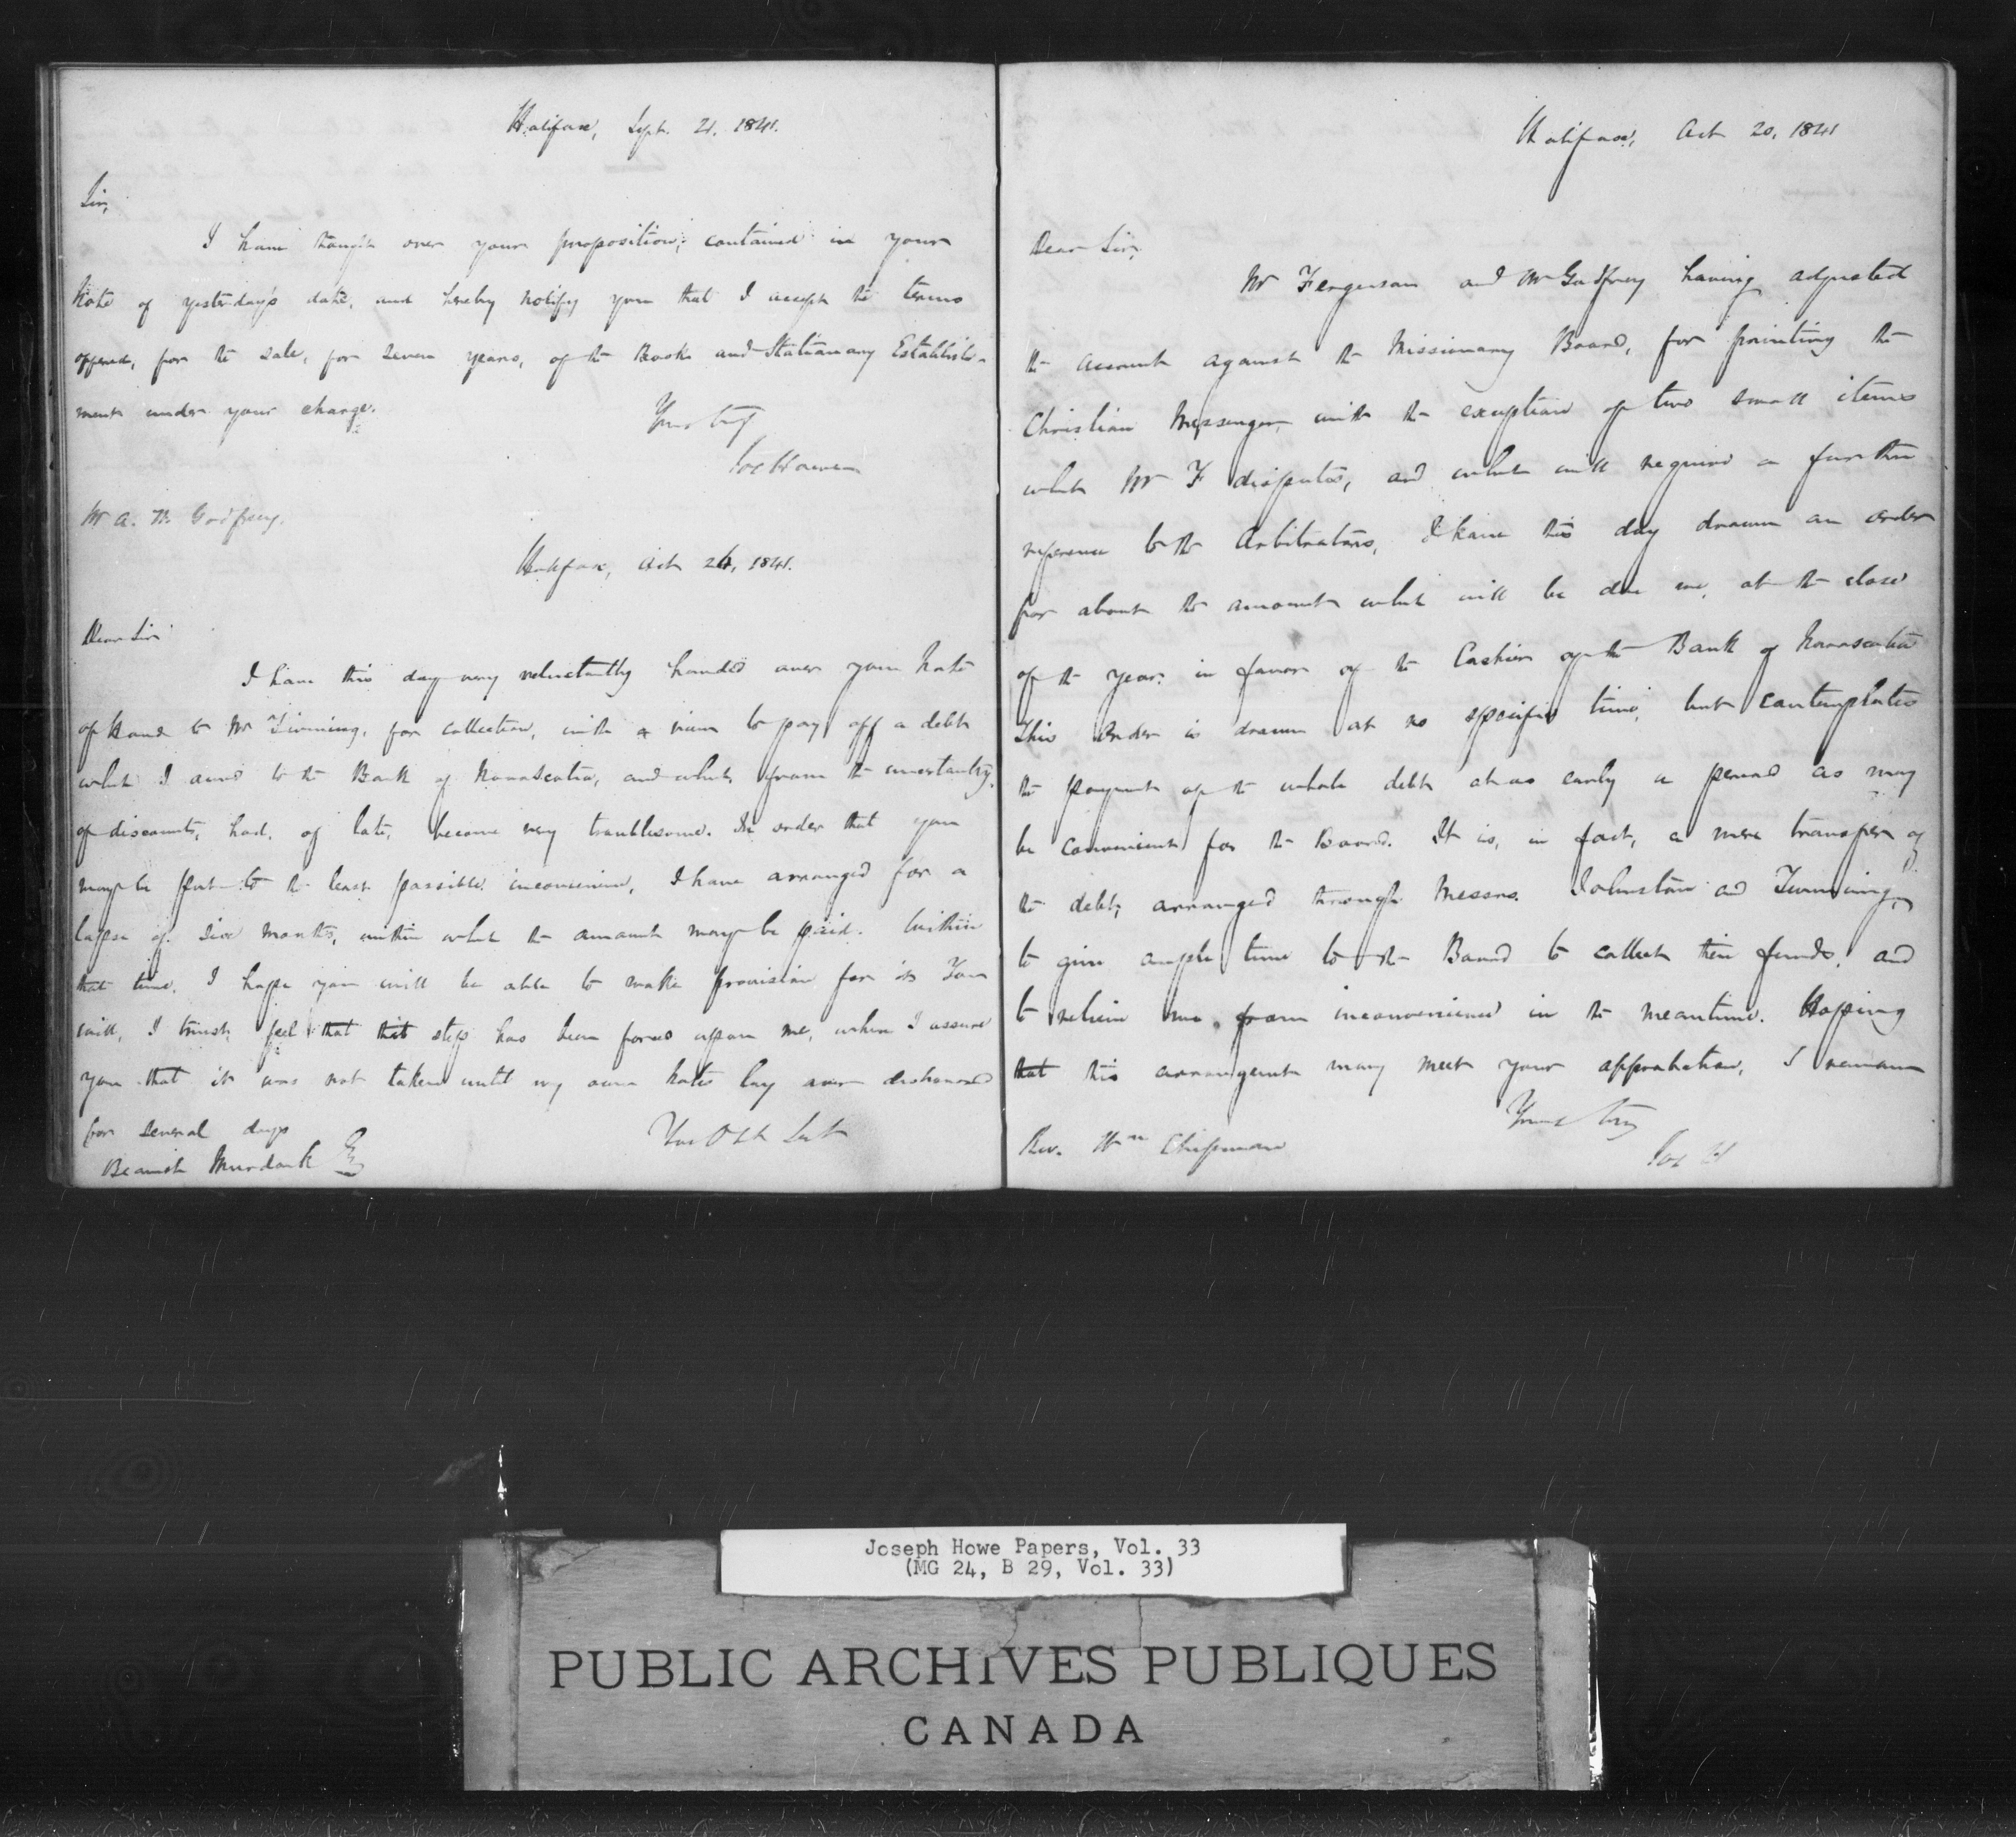 Halifax, Sept. 21. 1841.
Sir,
I have thought over your proposition, contained in your
Note of yesterday's date, and hereby notify you that I accept the terms
offered, for the sale, for seven years, of the Book and Stationary Establish-
ment under your charge.
Yours truly
Jos Howe
Mr A. W. Godfrey.
Halifax, Oct 26, 1841.
Dear Sir
I have this day very reluctantly handed over your Note
of hand to Mr Twining, for collection, with a view to pay off a debt
which I owed to the Bank of Novascotia, and which, from the uncertainty
of discounts, had, of late, become very troublesome. In order that you
may be put to the least possible inconvenience, I have arranged for a
lapse of six months, within which the amount may be paid. Within
that time, I hope you will be able to make provision for it. You
will, I trust, feel that this step has been forced upon me, when I assure
you that it was not taken until my own notes lay over dishonored
for several days
Your Obt Sert
Beamish Murdoch Esq
Halifax, Oct 20, 1841
Dear Sir,
Mr Ferguson and Mr Godfrey having adjusted
the account against the Missionary Board, for printing the
Christian Messenger, with the exception of two small items
which Mr F disputes, and which will require a further
reference to the Arbitrators, I have this day drawn an order
for about the amount which will be due me, at the close
of the year, in favor of the Cashier of the Bank of Novascotia
This order is drawn at no specified time, but contemplates
the payment of the whole debt at as early a period as may
be convenient for the Board. It is, in fact, a mere transfer of
the debt, arranged through Messrs. Johnston and Twining,
to give ample time to the Board to collect their funds, and
to relieve me from inconvenience in the meantime. Hoping
that this arrangement may meet your approbation, I remain
Yours truly
Jos H
Rev. Wm Chipman
Joseph Howe Papers, Vol. 33
(MG 24, B 29, Vol. 33)
PUBLIC ARCHIVES PUBLIQUES
CANADA